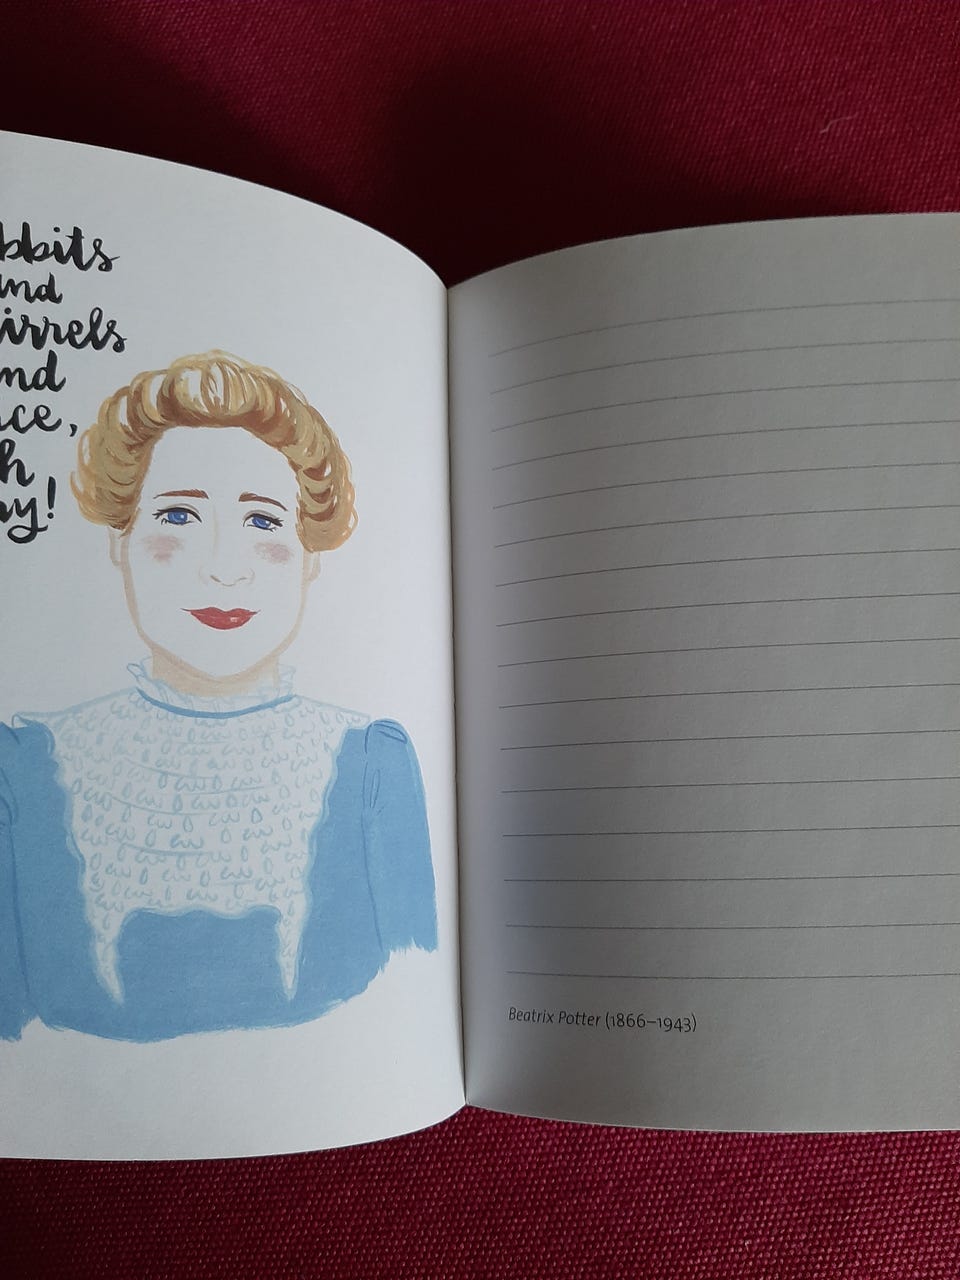 bbits
and
irrels
nd
ce,
h
ay!
Beatrix Potter (1866–1943)